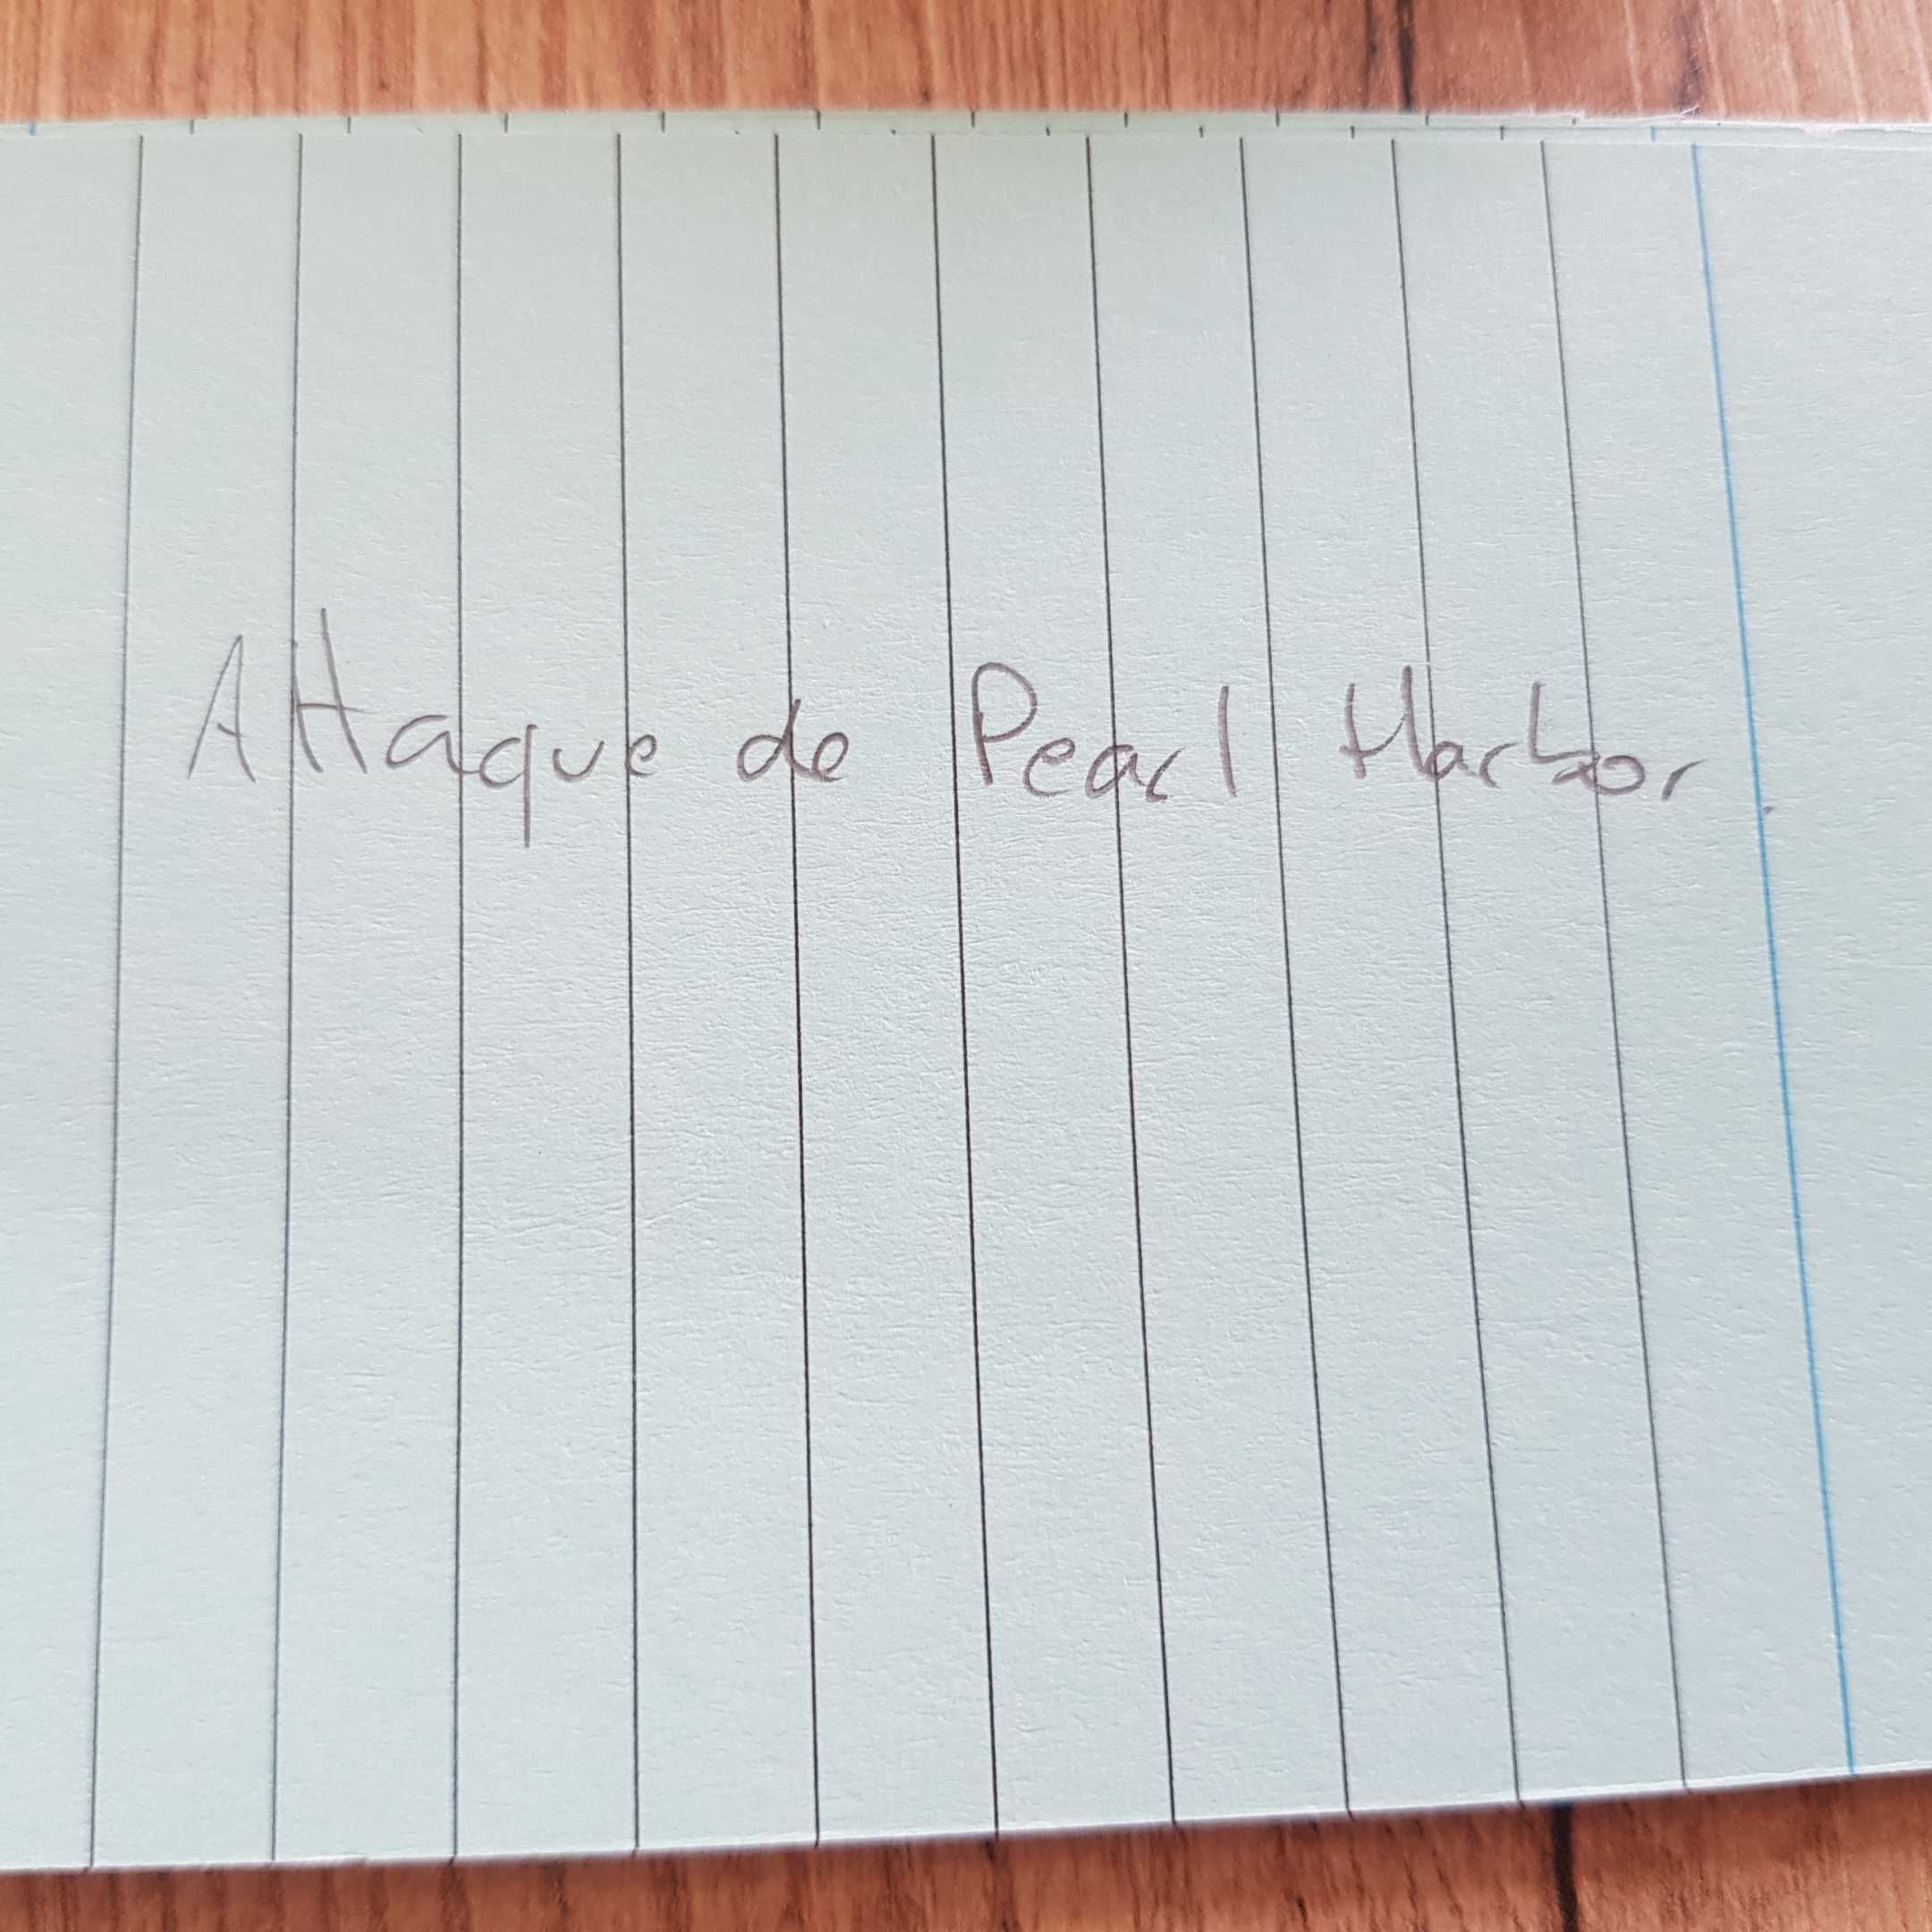 Attaque de Pearl Harbor.